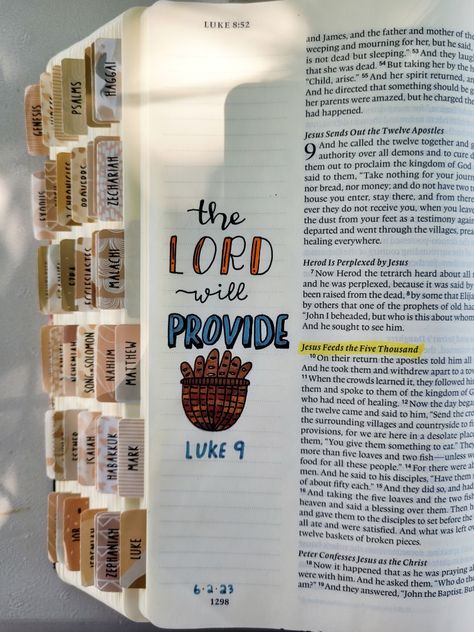 LUKE 8:52
GENESIS
PSALMS
HAGGAI
EXODUS
CHRONICLES
PROVERBS
ZECHARIAH
EZRA
ECCLESIASTES
MALACHI
NEHEMIAH
SONG OF SOLOMON
NAHUM
MATTHEW
ESTHER
ISAIAH
HABAKKUK
MARK
JOB
JEREMIAH
ZEPHANIAH
LUKE
the
LORD
will
PROVIDE
LUKE 9
6.2.23
1298
and James, and the father and mother of the
weeping and mourning for her, but he said
is not dead but sleeping." 53 And they laug
that she was dead. 54 But taking her by the h
"Child, arise." 55 And her spirit returned, an
And he directed that something should be g
her parents were amazed, but he charged the
had happened.
Jesus Sends Out the Twelve Apostles
9 And he called the twelve together and g
authority over all demons and to cure
them out to proclaim the kingdom of God
said to them, "Take nothing for your journ
nor bread, nor money; and do not have two
house you enter, stay there, and from there
ever they do not receive you, when you leave
the dust from your feet as a testimony again
departed and went through the villages, prea
healing everywhere.
Herod Is Perplexed by Jesus
7 Now Herod the tetrarch heard about all
and he was perplexed, because it was said by
been raised from the dead, 8 by some that Elija
by others that one of the prophets of old had
"John I beheaded, but who is this about whom
And he sought to see him.
Jesus Feeds the Five Thousand
10 On their return the apostles told him all
And he took them and withdrew apart to a tow
11 When the crowds learned it, they followed hi
them and spoke to them of the kingdom of G
who had need of healing. 12 Now the day bega
the twelve came and said to him, "Send the c
the surrounding villages and countryside to fi
provisions, for we are here in a desolate place
them, "You give them something to eat." They
more than five loaves and two fish—unless w
food for all these people." 14 For there were a
men. And he said to his disciples, "Have them
of about fifty each." 15 And they did so, and had
16 And taking the five loaves and the two fish
heaven and said a blessing over them. Then h
and gave them to the disciples to set before the
all ate and were satisfied. And what was left ov
twelve baskets of broken pieces.
Peter Confesses Jesus as the Christ
18 Now it happened that as he was praying al
were with him. And he asked them, "Who do the
am?" 19 And they answered, "John the Baptist. But